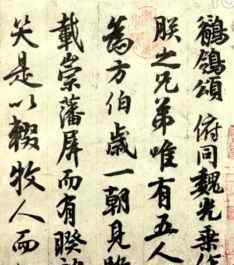 鶺鴒頌 俯同魏光乗作
朕之兄弟唯有五人
為方伯歲一朝見
載崇藩屏而有睽
笑是以輟牧人而